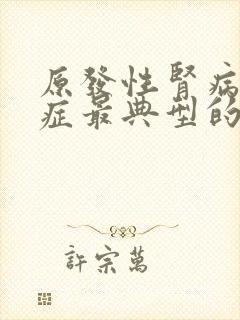 原發性腎病
症最典型的
許宗萬